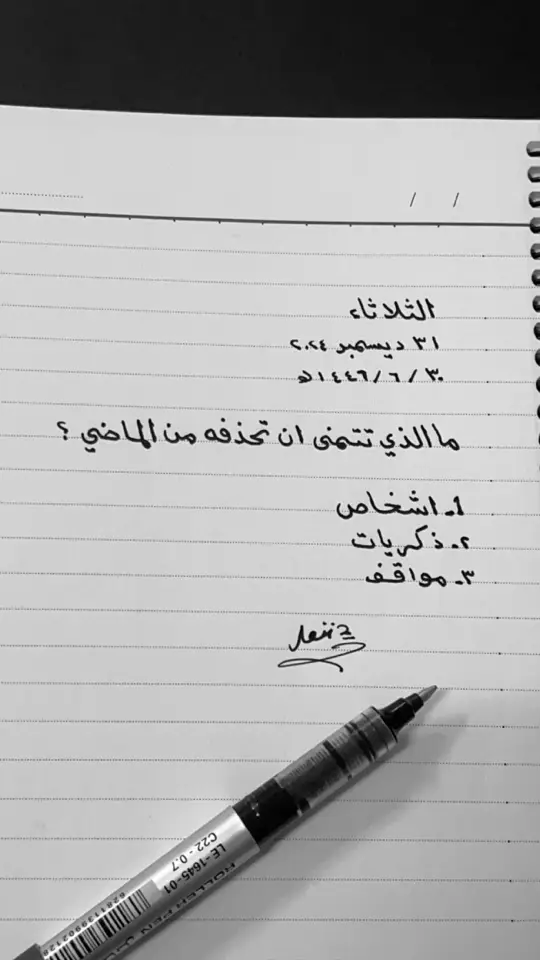 / /
الثلاثاء
٣١ ديسمبر ٢٠٢٤
٣٠/٦/١٤٤٦ه
ما الذي تتمنى ان تحذفه من الماضي ؟
1. اشخاص
٢. ذكريات
٣. مواقف
LE-1645-01
C22 - 0.7
ROLLER PEN